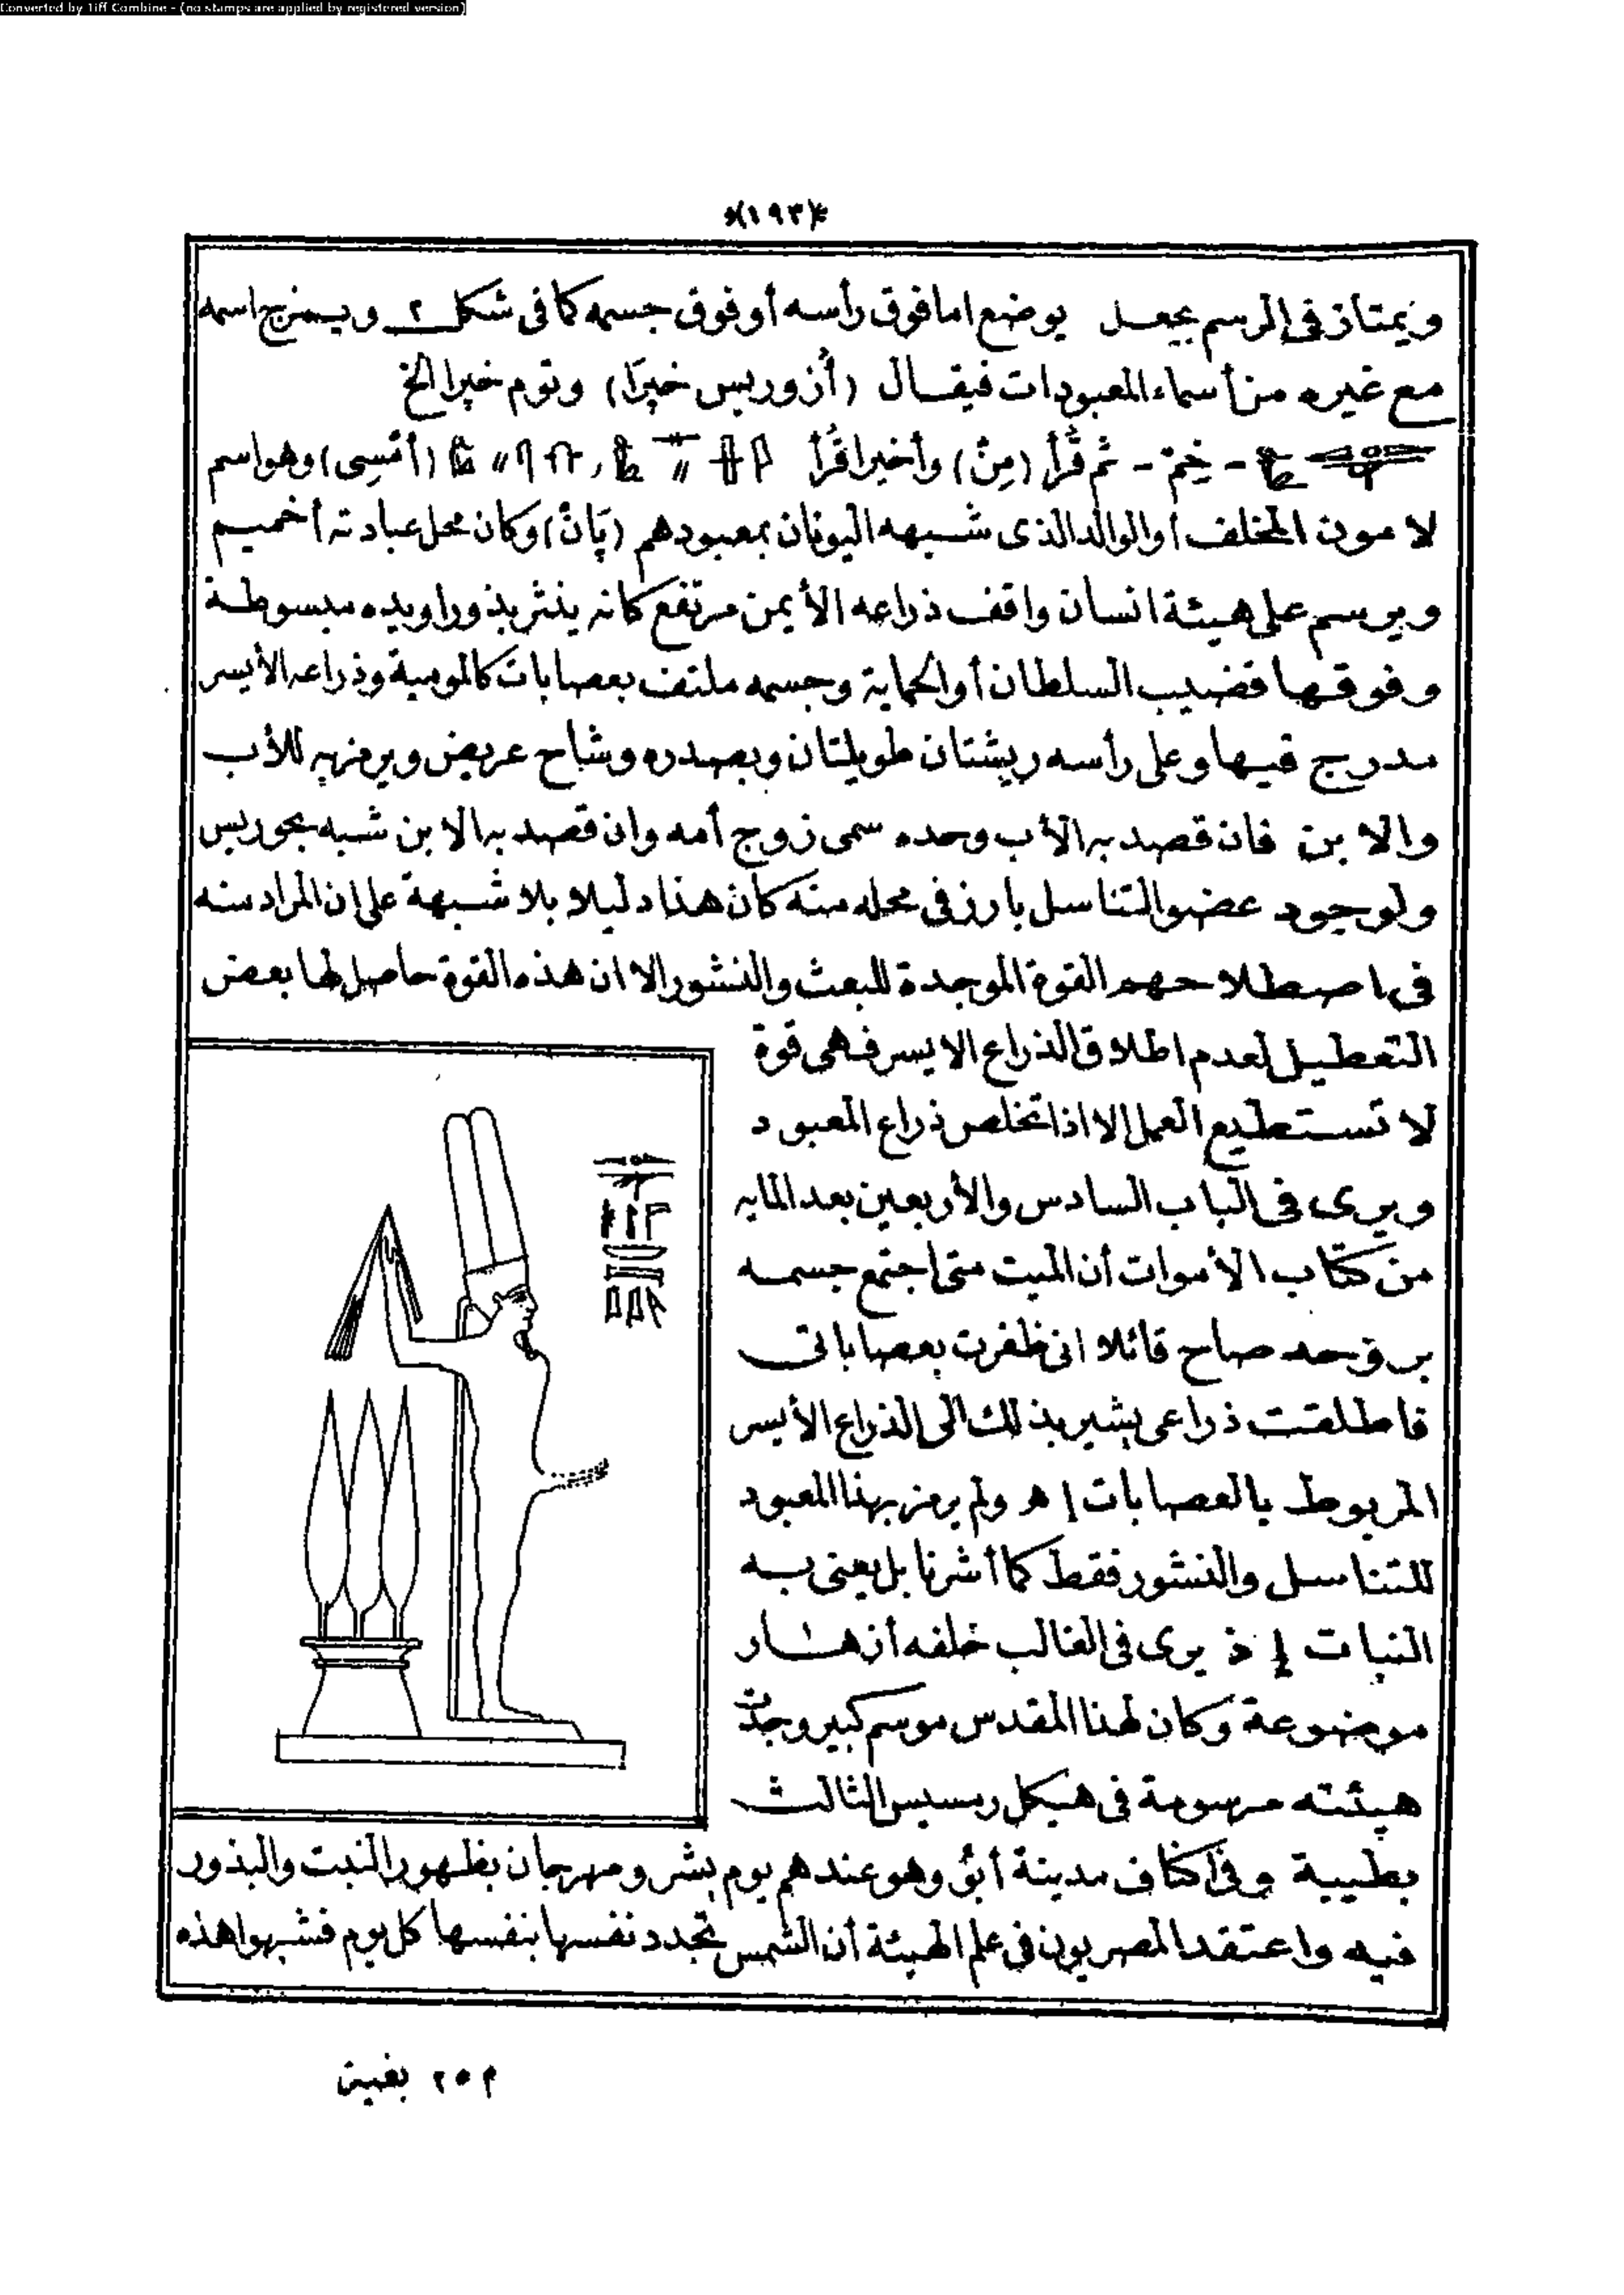 Converted by Tiff Combine - (no stamps are applied by registered version)
*(١٩٣)*
ويمتاز فى الرسم بجعل يوضع اما فوق رأسه أو فوق جسمه كما فى شكل ٢ ويمزج اسمه
مع غيره من أسماء المعبودات فيقال (أزوريس خپرا) وتوم خپرا الخ
- خِمْ - ثم قُرأ (مِنْ) وأخيرا قُرأ (أمْسِى) وهو اسم
لامون المخلف أو الوالد الذى شبهه اليونان بمعبودهم (پَانْ) وكان محل عبادته أخميم
ويرسم على هيئة انسان واقف ذراعه الأيمن مرتفع كانه ينثر بذورا ويده مبسوطة
وفوقها قضيب السلطان أو الحماية وجسمه ملتف بعصابات كالمومية وذراعه الأيسر
مدرج فيها وعلى رأسه ريشتان طويلتان وبصدره وشاح عريض ويرمز به للأب
والابن فان قصد به الأب وحده سمى زوج أمه وان قصد به الابن شبه بحوريس
ولوجود عضو التناسل بارز فى محله منه كان هذا دليلا بلا شبهة على ان المراد منه
فى اصطلاحهم القوة الموجدة للبعث والنشور الا ان هذه القوة حاصل لها بعض
التعطيل لعدم اطلاق الذراع الايسر فهى قوة
لا تستطيع العمل الا اذا تخلص ذراع المعبود
ويرى فى الباب السادس والأربعين بعد المايه
من كتاب الأموات أن الميت متى اجتمع جسمه
بروحه صاح قائلا انى ظفرت بعصاباتى
فاطلقت ذراعى يشير بذلك الى الذراع الأيسر
المربوط بالعصابات اه ولم يرمز بهذا المعبود
للتناسل والنشور فقط كما أشرنا بل يعنى به
النبات اذ يرى فى الغالب خلفه أزهار
موضوعة وكان لهذا المقدس موسم كبير وجدت
هيئته مرسومة فى هيكل رمسيس الثالث
بطيبة وفى اكاف مدينة أبو وهو عندهم يوم بشر ومهرجان بظهور النبت والبذور
فيه واعتقد المصريون فى علم الهيئة أن الشمس تجدد نفسها بنفسها كل يوم فشبهوا هذه
م ٢٥ بغية